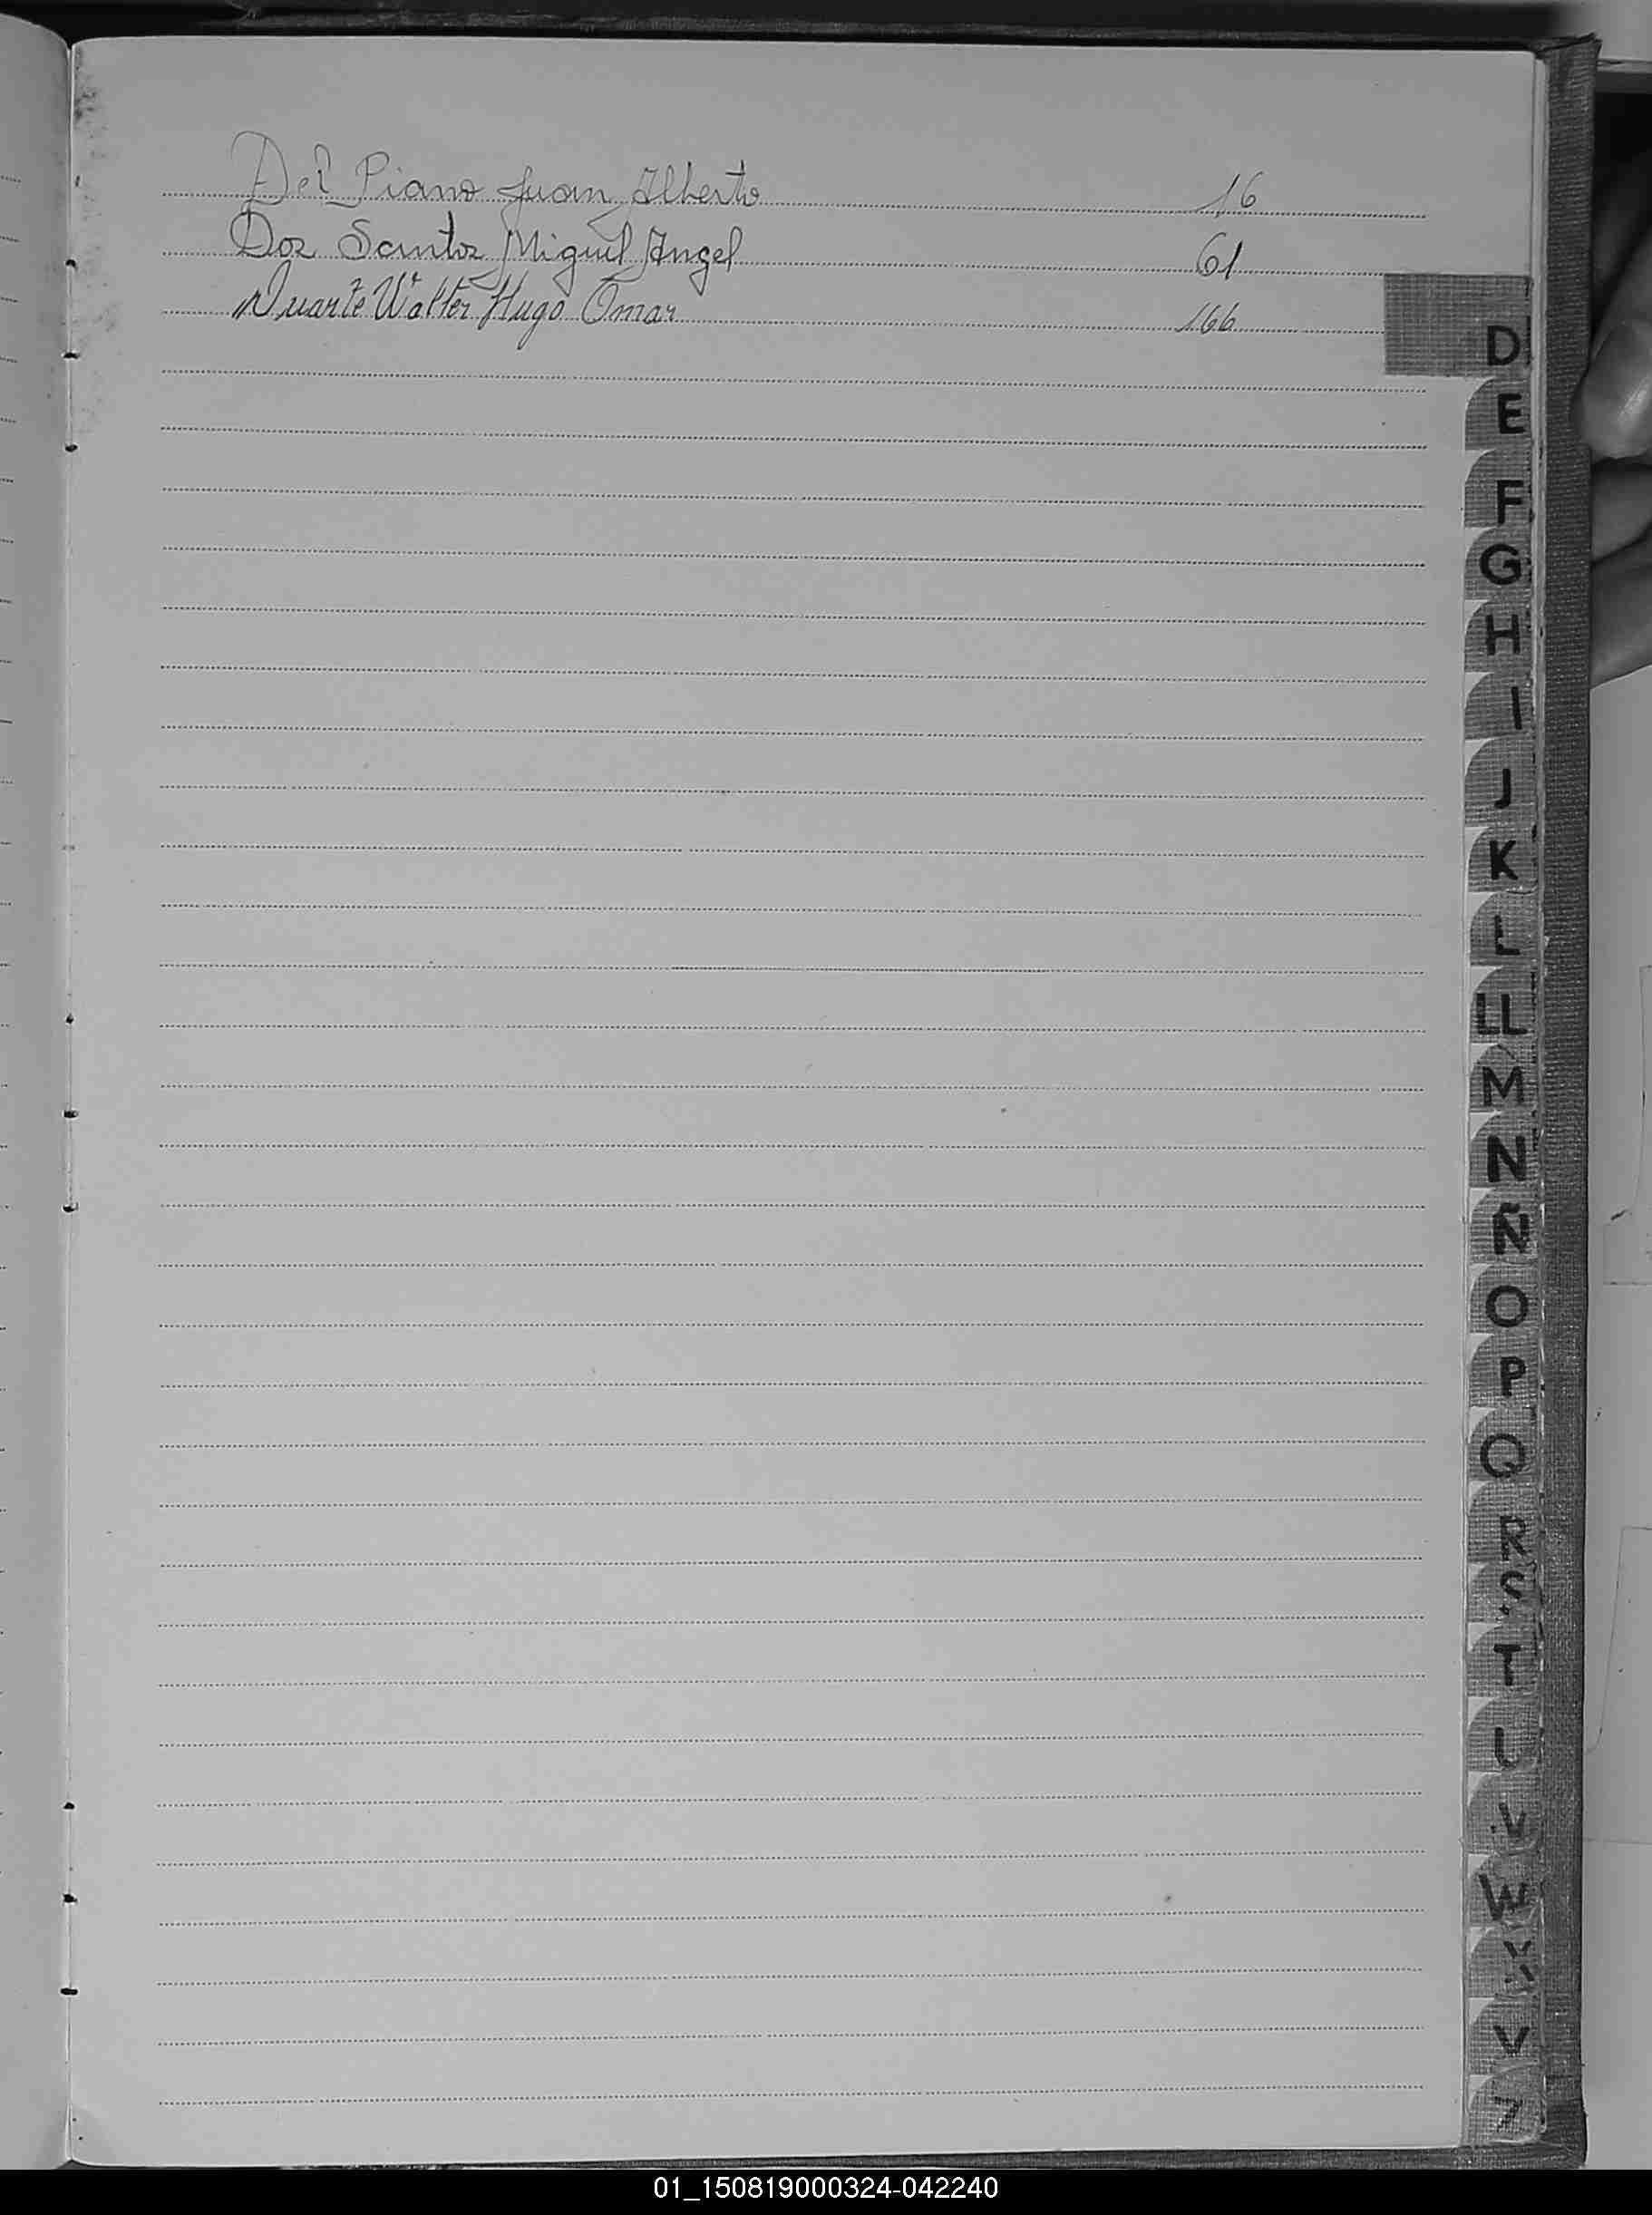 Del Piano Juan Alberto 16
Dos Santos Miguel Angel 61
Duarte Walter Hugo Omar 166
D
E
F
G
H
I
J
K
L
LL
M
N
Ñ
O
P
Q
R
S
T
V
W
X
Z
01_150819000324-042240